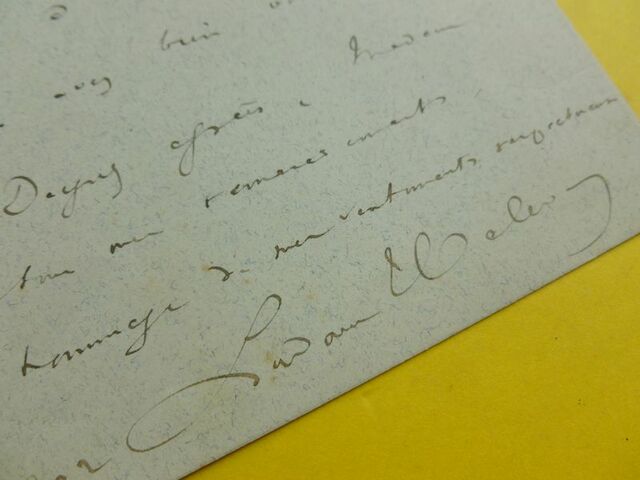 bien
Daignez agréer, Madame
tous mes remerciements,
hommage de mes sentiments respectueux
Ludovic Halévy